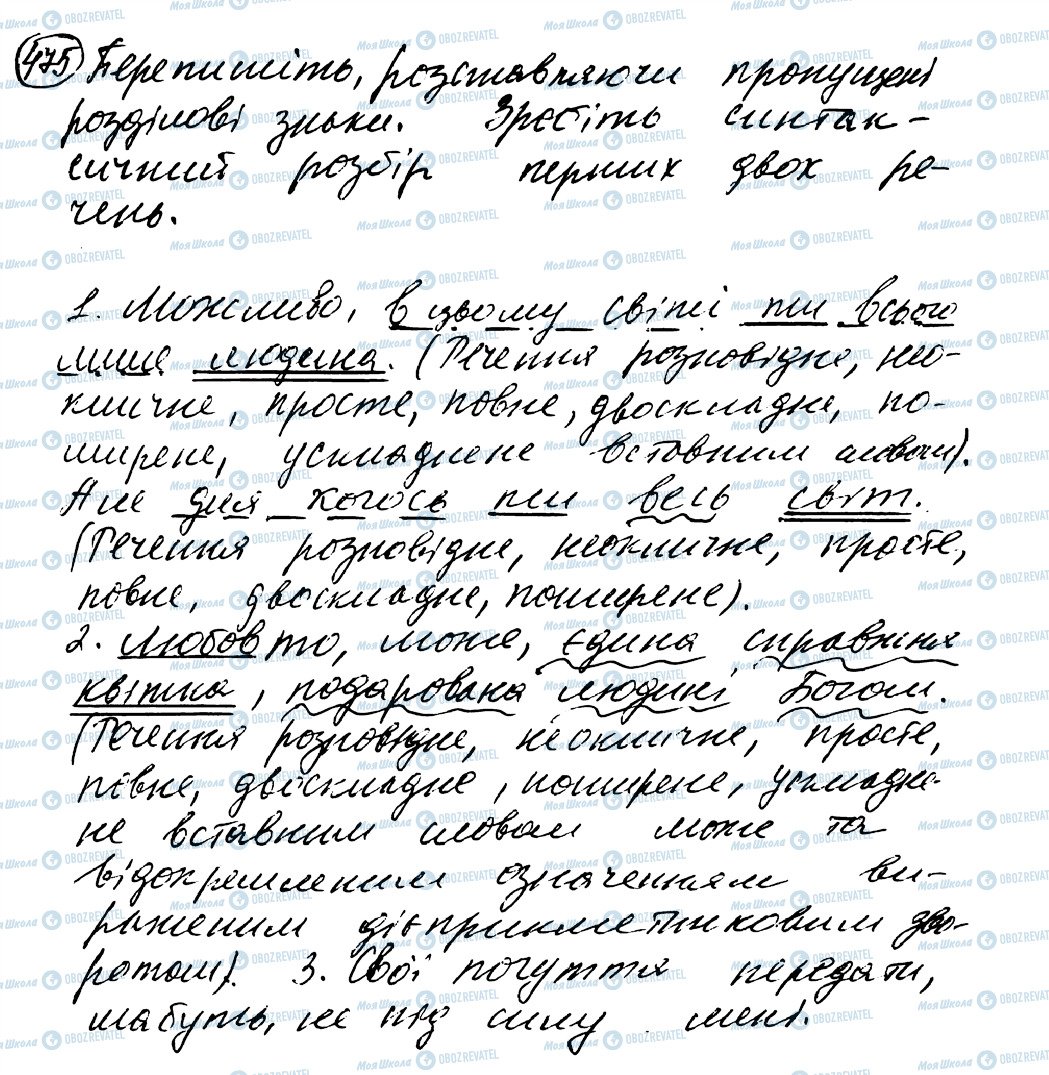 475 Перепишіть, розставляючи пропущені
розділові знаки. Зробіть синтак-
сичний розбір перших двох ре-
чень.
1. Можливо, в цьому світі ти всього
лише людина. (Речення розповідне, нео-
кличне, просте, повне, двоскладне, по-
ширене, ускладнене вставним словом).
Але для когось ти весь світ.
(Речення розповідне, неокличне, просте,
повне, двоскладне, поширене).
2. Любов то, може, єдина справжня
квітка, подарована людині Богом.
(Речення розповідне, неокличне, просте,
повне, двоскладне, поширене, ускладне-
не вставним словом може та
відокремленим означенням ви-
раженим дієприкметниковим зво-
ротом). 3. Свої почуття передати,
мабуть, не під силу мені.